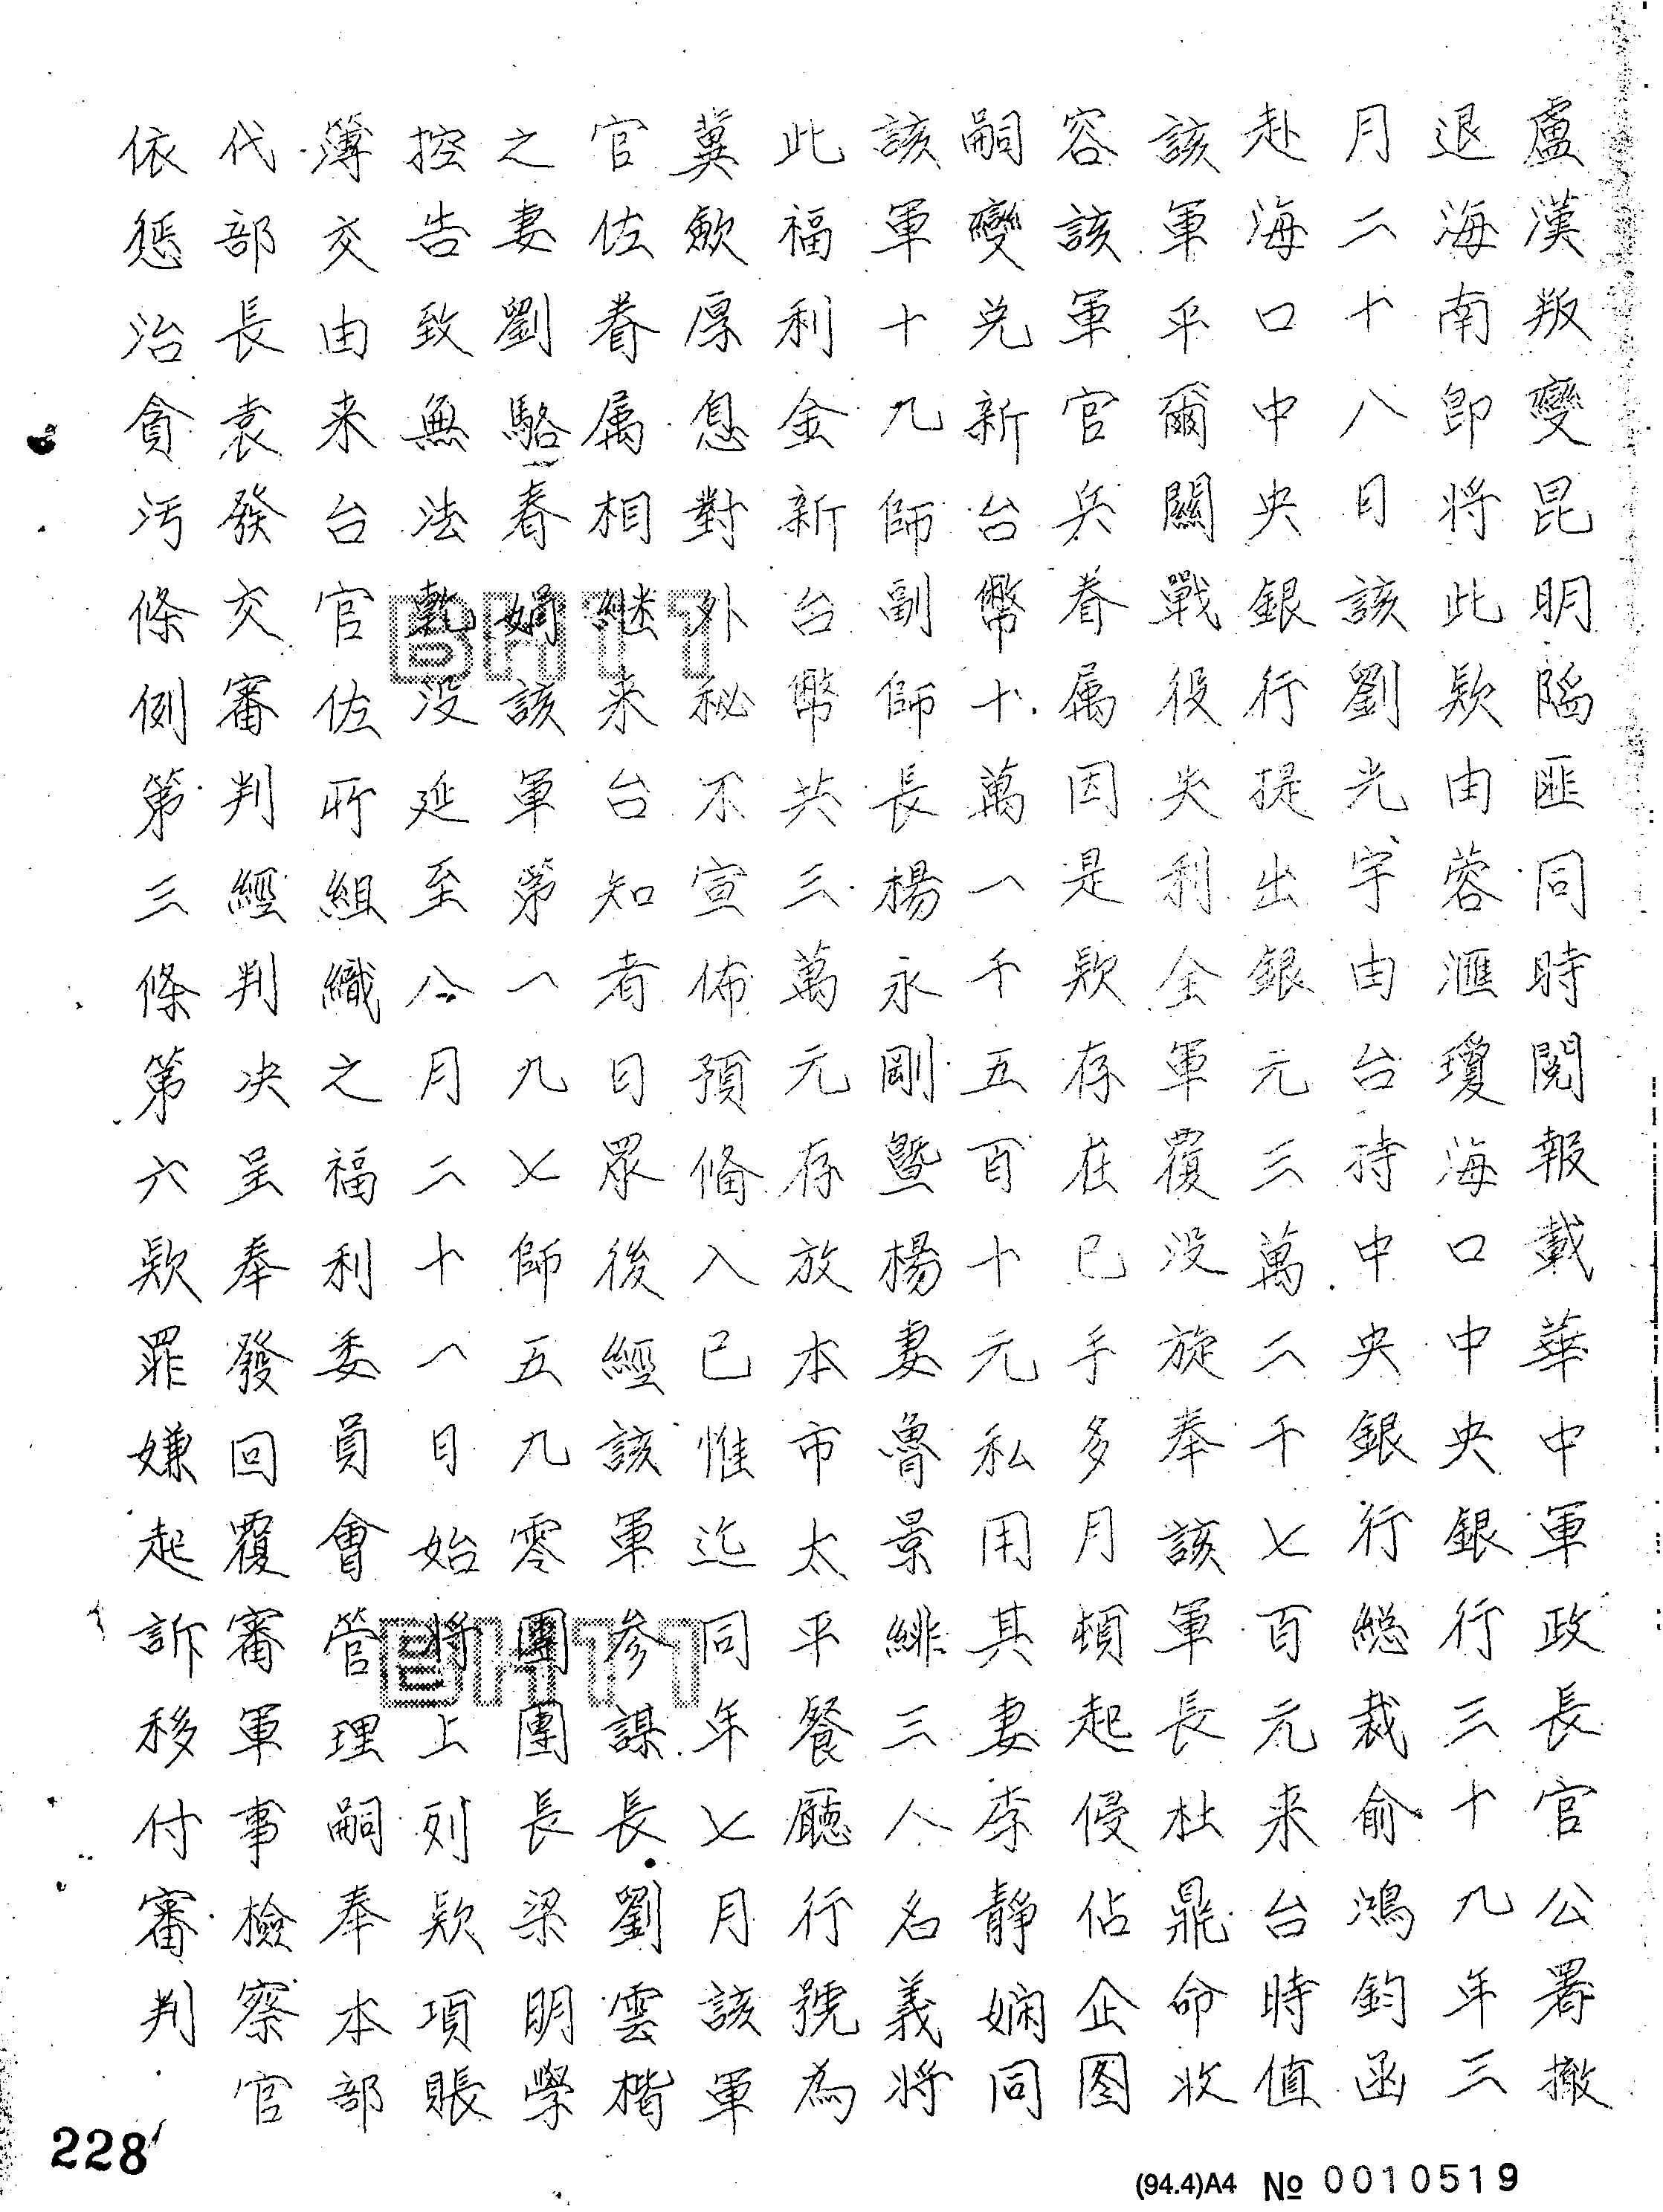 盧漢叛變昆明陷匪同時閱報載華中軍政長官公署撤
退海南即将此欵由蓉滙瓊海口中央銀行三十九年三
月二十八日該劉光宇由台持中央銀行総裁俞鴻鈞函
赴海口中央銀行提出銀元三萬二千七百元来台時值
該軍平爾關戰役失利全軍覆没旋奉該軍長杜鼎命收
容該軍官兵眷属因是欵存在已手多月頓起侵佔企图
嗣變兑新台幣十萬一千五百十元私用其妻李静嫻同
該軍十九師副師長楊永剛暨楊妻魯景緋三人名義将
此福利金新台幣共三萬元存放本市太平餐廳行號為
冀歛厚息對外秘不宣佈預備入已惟迄同年七月該軍
官佐眷属相継来台知者日眾後經該軍参謀長劉雲楷
之妻劉駱春娟該軍第一九七師五九零團團長梁明學
控告致無法乾没延至八月二十一日始将上列欵項賬
簿交由来台官佐所組織之福利委員會管理嗣奉本部
代部長袁發交審判經判决呈奉發回覆審軍事檢察官
依惩治貪污條例第三條第六欵罪嫌起訴移付審判
228
(94.4)A4 № 0010519
BHTT
BHTT